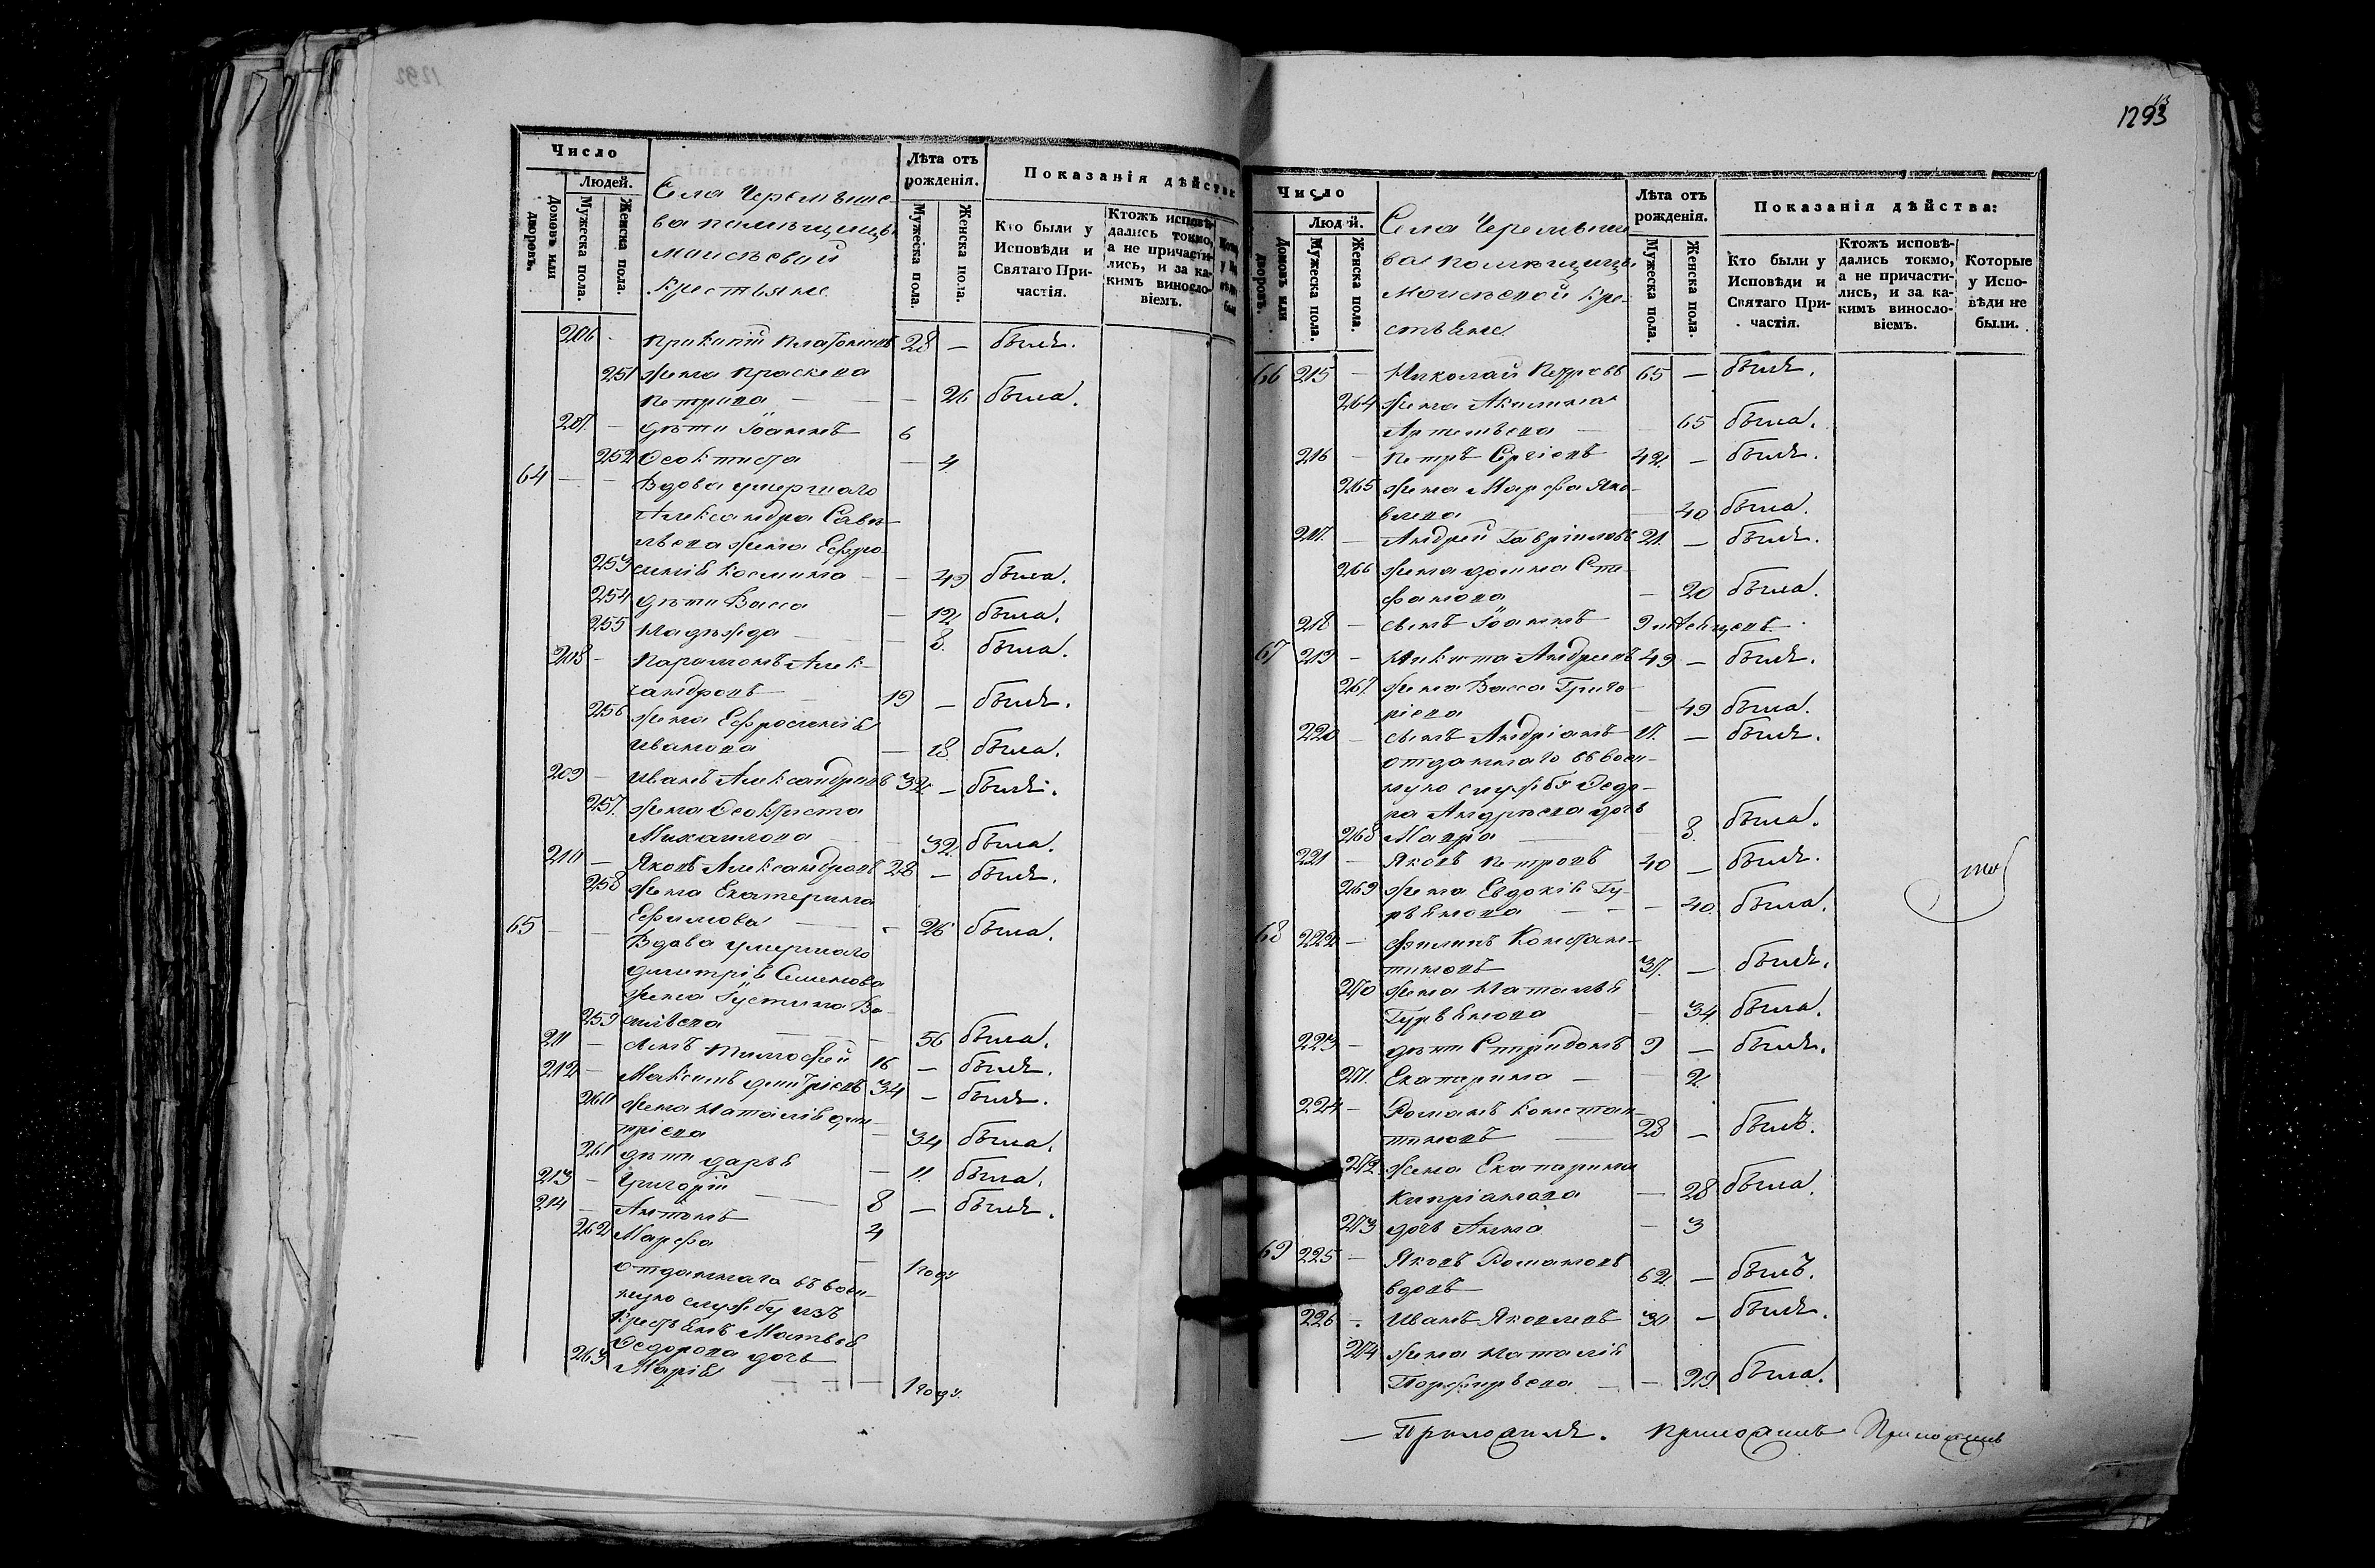 1293
Число
Людей.
Домовъ или дворовъ.
Мужеска пола.
Женска пола.
Села Черемыше-
ва помѣщицы
Моисѣевой
Крестьяне
Лѣта отъ рожденія.
Мужеска пола.
Женска пола.
Показанія дѣйства
Кто были у Исповѣди и Святаго При-
частія.
Ктожъ исповѣ-
дались токмо,
а не причасти-
лись, и за ка-
кимъ винсло-
віемъ.
206 - Прокопій Платоновъ 28 — былъ.
251 жена Праскева
Петрова — — 26 была.
207. — дѣти Іоаннъ 6
252 Ѳеоктиста — 4
64 — — Вдова умершаго
Александра Саве-
льева жена Ефро-
253 синія Космина — — 49 была.
254 дѣти Васса — 12 была.
255 Надежда — — 8. была.
208 - Парамонъ Алек-
сандровъ — 19 — былъ.
256 жена Ефросинія
Иванова — 18. была.
209 — Иванъ Александровъ 32. — былъ.
257. жена Ѳеоктиста
Михаилова — 32. была.
210 — Яковъ Александровъ 28 — былъ.
258 жена Екатерина
Ефимова — - 26 была.
65 — — Вдова умершаго
Димитрія Семенова
жена Іустина Ва-
259 сильева — — 56 была.
211 — сынъ Тимофей 16 — былъ.
212 — Максимъ Димитріевъ 34 — былъ.
260 жена Наталія Дими-
тріева — 34 была.
261 дѣти Дарья — 11. была.
213 — Григорій — 8 — былъ.
214 — Антонъ — 4
262 Марфа — 1 году
отданнаго въ воен-
ную службу изъ
крестьянъ Матвѣя
Ѳедорова дочь
263 Марія — — — 1 году.
Число
Людей.
Домовъ или дворовъ.
Мужеска пола.
Женска пола.
Села Черемыше
ва помѣщицы
Моисѣевой Кре-
стьяне
Лѣта отъ рожденія.
Мужеска пола.
Женска пола.
Показанія дѣйства:
Кто были у
Исповѣди и
Святаго При-
частія.
Ктожъ исповѣ-
дались токмо,
а не причасти-
лись, и за ка-
кимъ винсло-
віемъ.
Которые
у Испо-
вѣди не
были.
66 215 — Николай Петровъ 65 — былъ.
264 жена Акилина
Артемьева — 65 была.
216 — Петръ Сергіевъ 42. — былъ.
265 жена Марфа Яко-
влева — 40 была.
217. — Андрей Гавріиловъ 21. — былъ.
266 жена Домна Сте-
фанова — 20 была.
218 — сынъ Іоаннъ 9
67 219 — Никита Андреевъ 49 — былъ.
267. жена Васса Григо-
ріева — 49 была.
220 — сынъ Андріанъ 17. — былъ.
отданнаго въ воен-
ную службу Ѳедо-
ра Андреева дочь
268 Мавра — 8. была.
221 — Яковъ Петровъ 40 — былъ.
269 жена Евдокія Гу-
рьянова — — — 40. была.
68 222 — Филипъ Констан-
тиновъ 37. — былъ.
270 жена Наталья
Гурьянова — 34. была.
223 — дѣти Спиридонъ 9 — былъ.
271. Екатерина — — 2.
224 — Романъ Констан-
тиновъ — 28 — былъ.
272. жена Екатерина
Кипріанова — 28 была.
273 дочь Анна — 3
69 225 — Яковъ Романовъ
вдовъ 62. — былъ.
226 - Иванъ Яковлевъ 30 — былъ.
274 жена Наталія
Порфирьева — — 29. была.